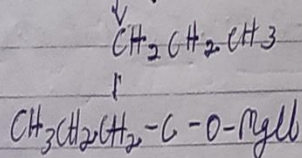 CH2CH2CH3
CH3CH2CH2-C-O-MgCl